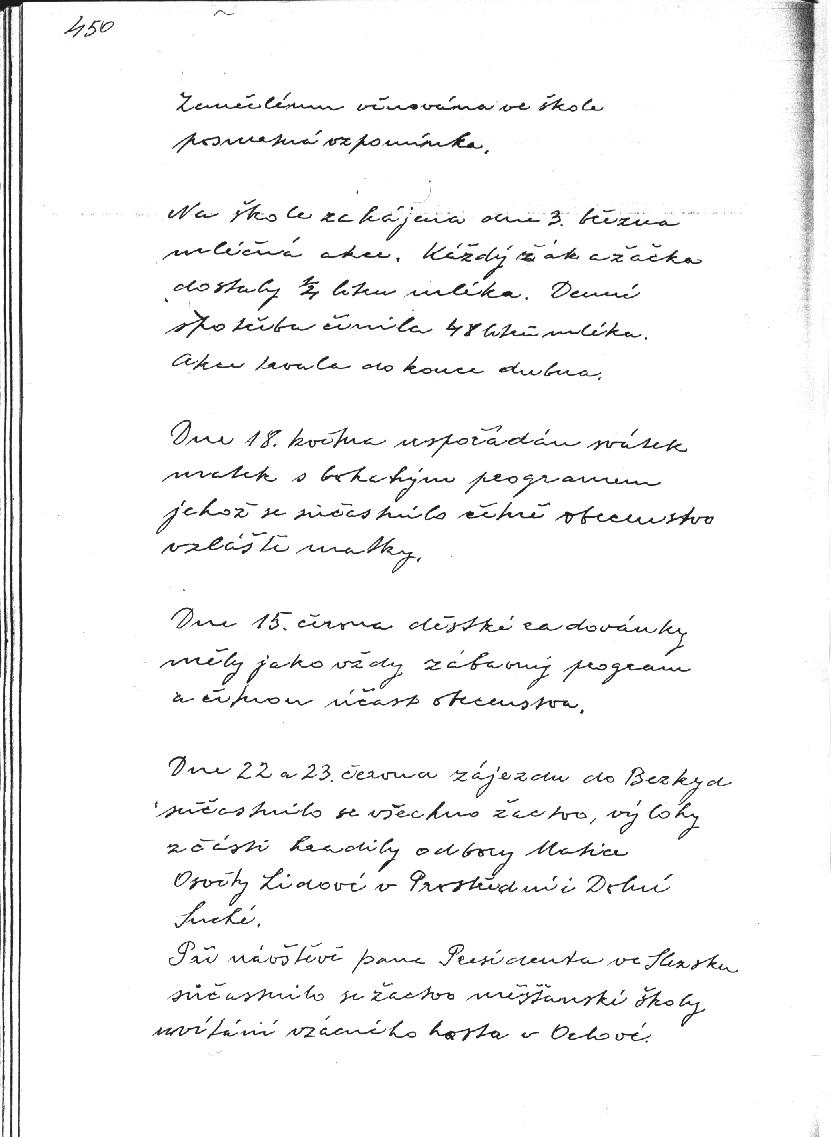 450
Zemřelému věnována ve škole
posmrtná vzpomínka.
Na škole zahájena dne 3. března
mléčná akce. Každý žák a žačka
dostaly 1/4 litru mléka. Denní
spotřeba činila 48 litrů mléka.
Akce trvala do konce dubna.
Dne 18. května uspořádán svátek
matek s bohatým programem
jehož se súčastnilo četné obecenstvo
vzláště matky.
Dne 15. června dětské radovánky
měly jako vždy zábavný program
a četnou účast obecenstva.
Dne 22 a 23. června zájezdu do Bezkyd
súčastnilo se všechno žactvo, výlohy
z části hradily odbory Matice
Osvěty Lidové v Prostřední i Dolní
Suché.
Při návštěvě pana Presidenta ve Slezsku
súčastnilo se žactvo měšťanské školy
uvítání vzácného hosta v Orlové.